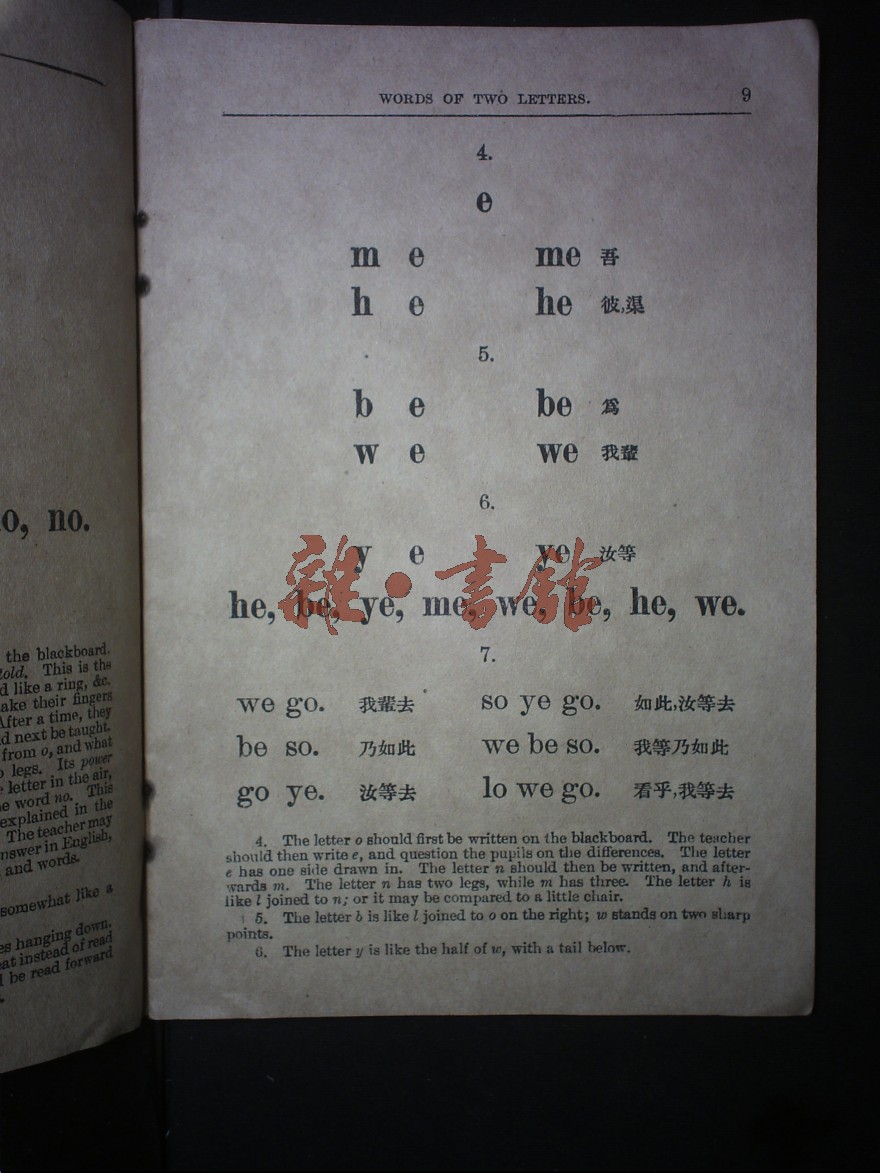 o, no.
the blackboard.
told. This is the
d like a ring, &c.
ake their fingers
After a time, they
d next be taught.
from o, and what
o legs. Its power
letter in the air,
e word no. This
explained in the
The teacher may
nswer in English,
and words.
somewhat like a
es hanging down.
eat instead of read
l be read forward
WORDS OF TWO LETTERS. 9
4.
e
m e me 吾
h e he 彼,渠
5.
b e be 爲
w e we 我輩
6.
y e ye 汝等
雜·書館
he, be, ye, me, we, be, he, we.
7.
we go. 我輩去 so ye go. 如此,汝等去
be so. 乃如此 we be so. 我等乃如此
go ye. 汝等去 lo we go. 看乎,我等去
4. The letter o should first be written on the blackboard. The teacher
should then write e, and question the pupils on the differences. The letter
e has one side drawn in. The letter n should then be written, and after-
wards m. The letter n has two legs, while m has three. The letter h is
like l joined to n; or it may be compared to a little chair.
5. The letter b is like l joined to o on the right; w stands on two sharp
points.
6. The letter y is like the half of w, with a tail below.